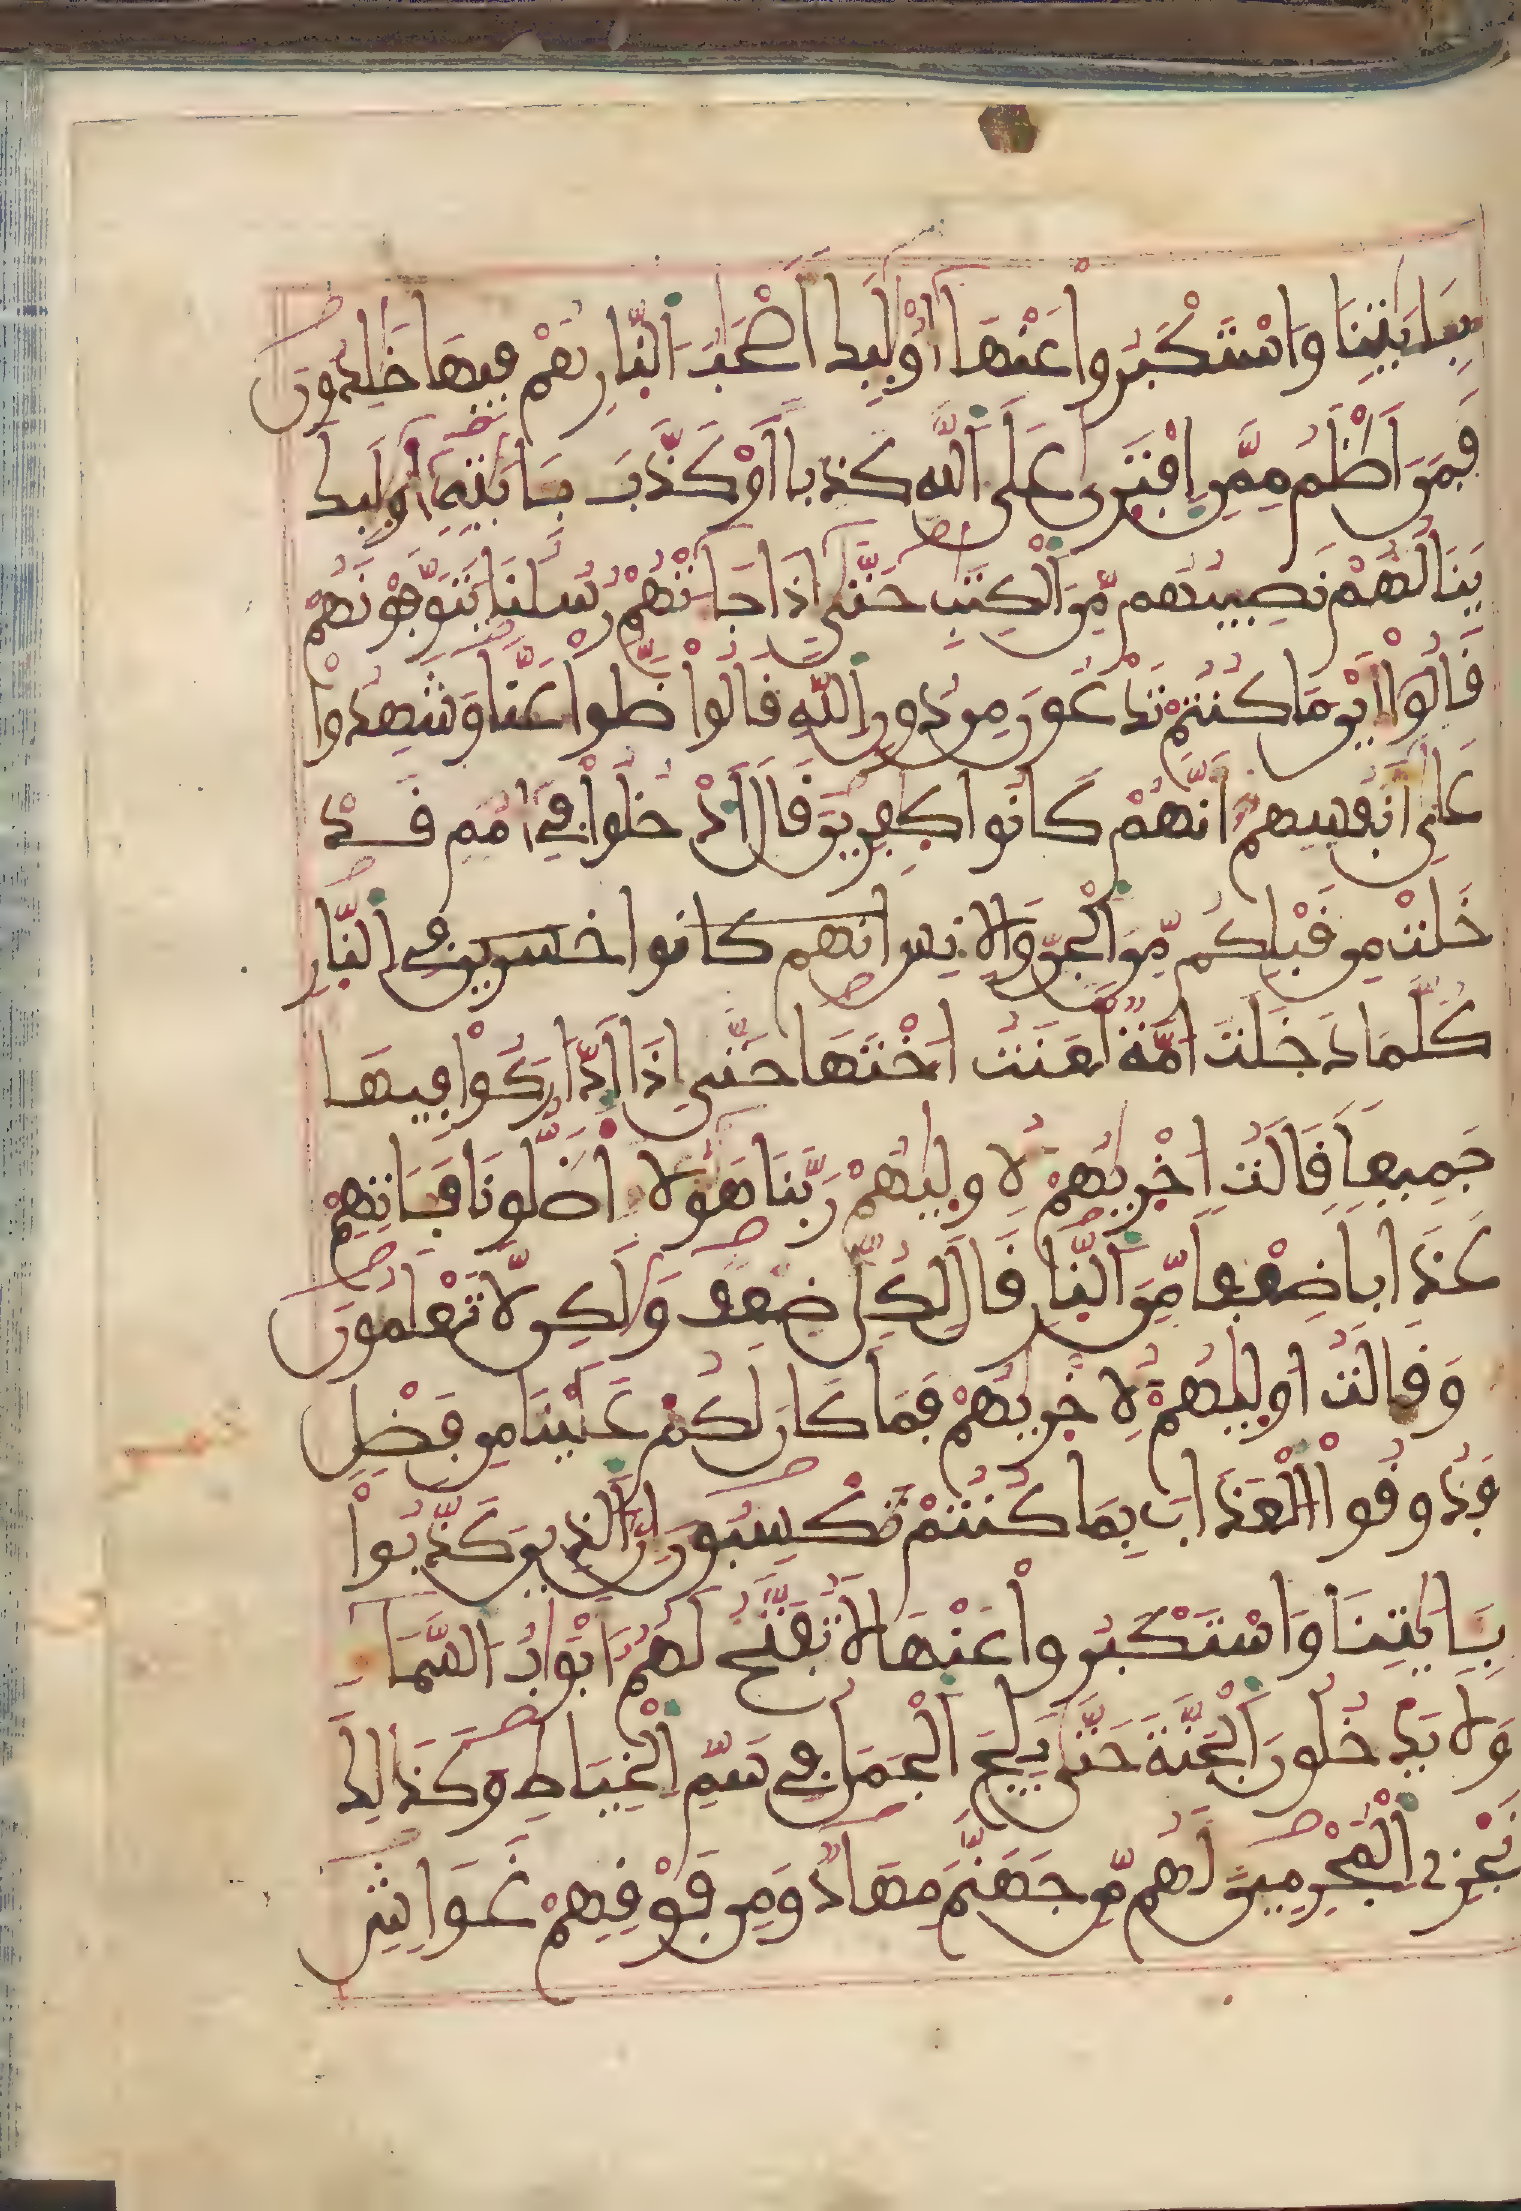 بِـَٔايَٰتِنَا وَاسْتَكْبَرُواْ عَنْهَا أُوْلَٰٓئِكَ أَصْحَٰبُ اَ۬لنّ۪ارِ هُمْ فِيهَا خَٰلِدُونَ
فَمَنَ اَظْلَمُ مِمَّنِ اِ۪فْتَر۪ىٰ عَلَى اَ۬للَّهِ كَذِباً اَوْ كَذَّبَ بِـَٔايَٰتِهِۦٓ أُوْلَٰٓئِكَ
يَنَالُهُمْ نَصِيبُهُم مِّنَ اَ۬لْكِتَٰبِ حَتَّىٰٓ إِذَا جَآءَتْهُمْ رُسُلُنَا يَتَوَفَّوْنَهُمْ
قَالُوٓاْ أَيْنَ مَا كُنتُمْ تَدْعُونَ مِن دُونِ اِ۬للَّهِ قَالُواْ ضَلُّواْ عَنَّا وَشَهِدُواْ
عَلَىٰٓ أَنفُسِهِمُۥٓ أَنَّهُمْ كَانُواْ كٰ۪فِرِينَ قَالَ اَ۟دْخُلُواْ فِےٓ أُمَمٖ قَدْ
خَلَتْ مِن قَبْلِكُم مِّنَ اَ۬لْجِنِّ وَالِانسِ انهم كانوا خسرين فِے اِ۬لنّ۪ارِ
كُلَّمَا دَخَلَتُ امَّةٞ لَّعَنَتُ اخْتَهَا حَتَّىٰٓ إِذَا اَ۪دَّارَكُواْ فِيهَا
جَمِيعاٗ قَالَتُ اخْر۪ىٰهُمْ لِأُول۪ىٰهُمْ رَبَّنَا هَٰٓؤُلَآءِ اَضَلُّونَا فَـَٔاتِهِمْ
عَذَاباٗ ضِعْفاٗ مِّنَ اَ۬لنّ۪ارِ قَالَ لِكُلّٖ ضِعْفٞ وَلَٰكِن لَّا تَعْلَمُونَ
وَقَالَتُ اول۪ىٰهُمْ لِأُخْر۪ىٰهُمْ فَمَا كَانَ لَكُمْ عَلَيْنَا مِن فَضْلٖ
فَذُوقُواْ اُ۬لْعَذَابَ بِمَا كُنتُمْ تَكْسِبُونَ إِنَّ اَ۬لذِينَ كَذَّبُواْ
بِـَٔايَٰتِنَا وَاسْتَكْبَرُواْ عَنْهَا لَا تُفَتَّحُ لَهُمُۥٓ أَبْوَٰبُ اُ۬لسَّمَآءِ
وَلَا يَدْخُلُونَ اَ۬لْجَنَّةَ حَتَّىٰ يَلِجَ اَ۬لْجَمَلُ فِے سَمِّ اِ۬لْخِيَاطِ وَكَذَٰلِكَ
نَجْزِے اِ۬لْمُجْرِمِينَ لَهُم مِّن جَهَنَّمَ مِهَادٞ وَمِن فَوْقِهِمْ غَوَاشٖ